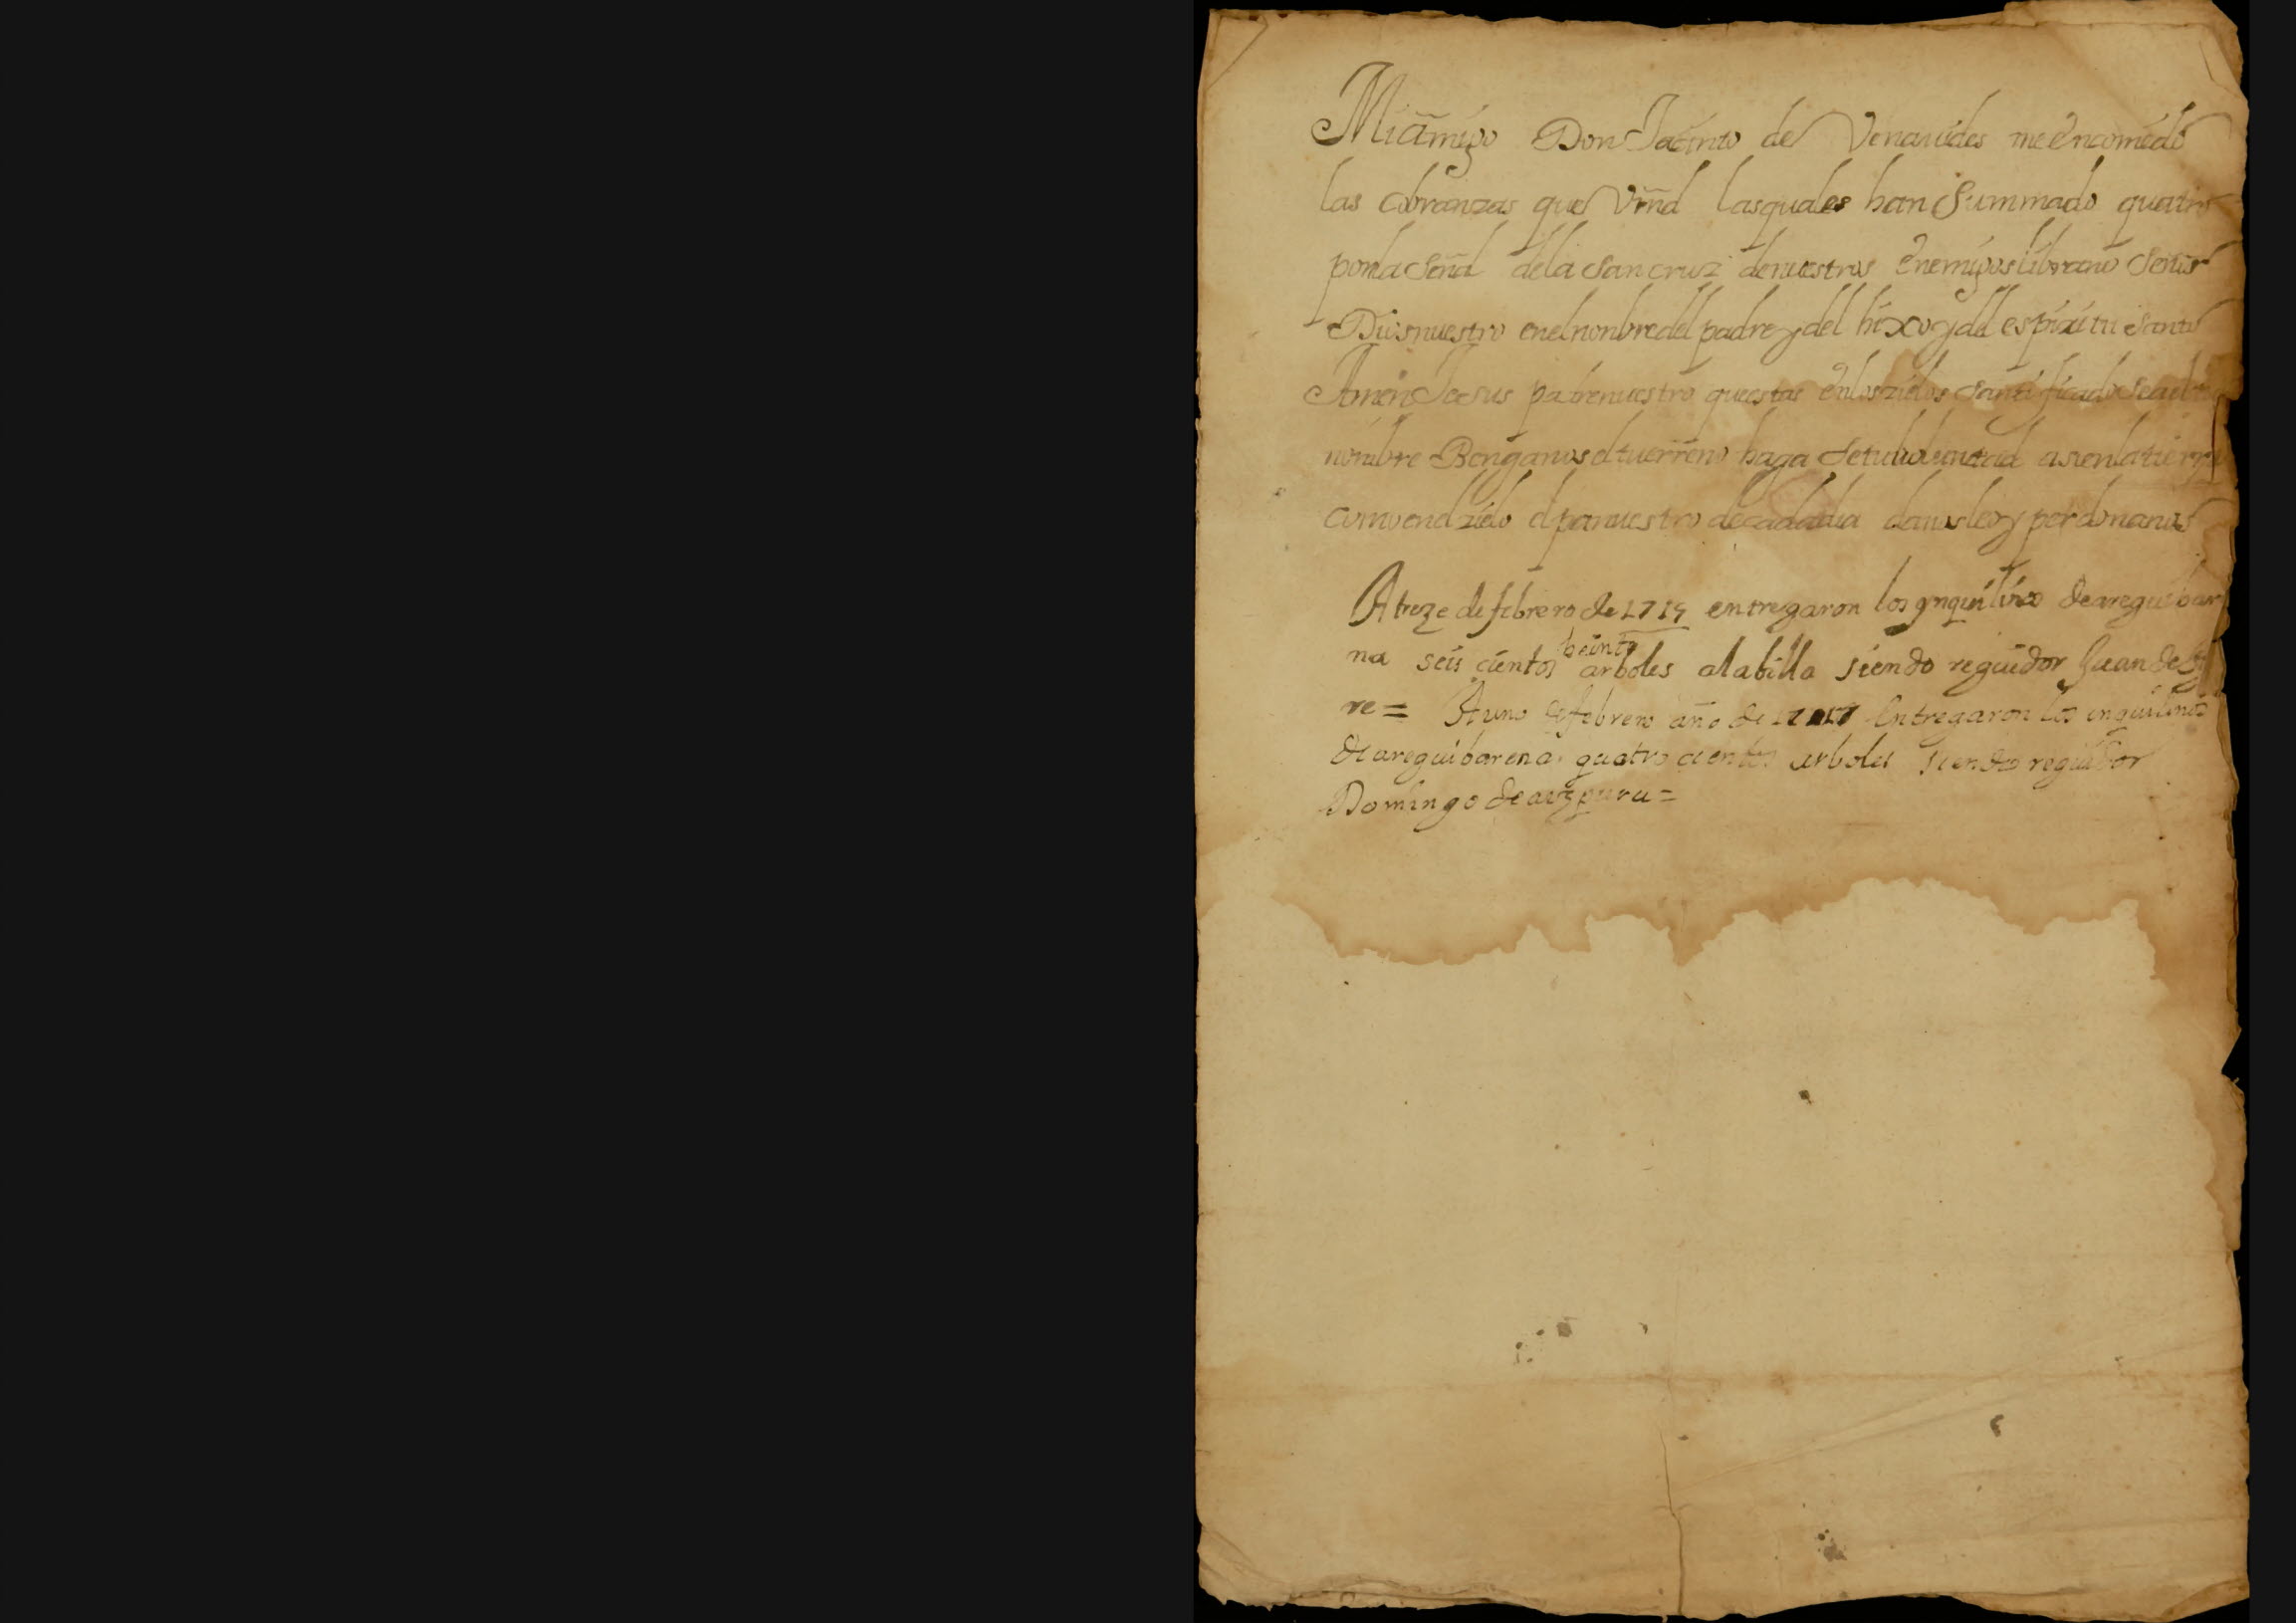 Mi amigo Don Jacinto de Venauides me encomēdo
las cobranzas que Vind las quales han Summado quatro
por la señal de la San cruz de nuestros enemigos libranō Señor
Dios nuestro en el nonbre del padre y del hixo y del espiritu Santo
Amen Jesus padre nuestro que estas en los zielos santificado sea el
nombre Benganos el tu rreno haga se tu boluntad asi en la tierra
como en el zielo el pan nuestro de cada dia danos leo y perdonanos
A treze de febrero de 1715 entregaron los ynquilinos de areguibar
na seis cientos beinte arboles a la billa siendo reguidor Juan de
re = A uno de febrero año de 1717 Entregaron los inquilinos
de areguibarena quatro cientos arboles siendo reguidor
Domingo de aezpuru =